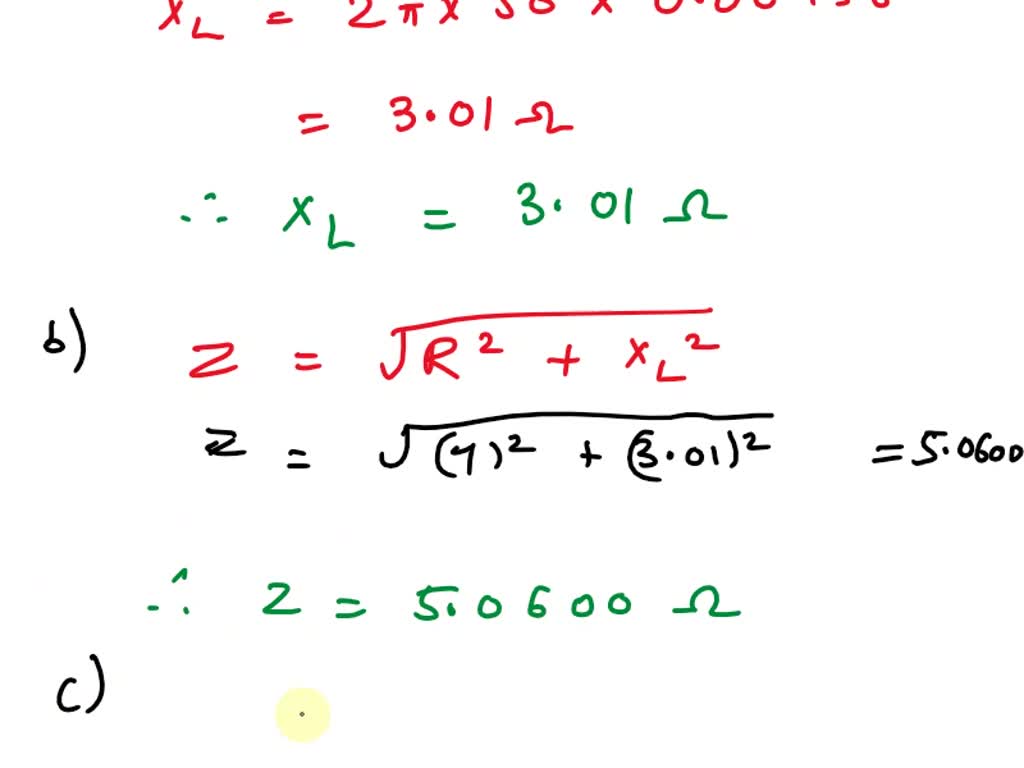 = 3.01 Ω
∴ XL = 3.01 Ω
b) Z = √R² + XL²
Z = √(4)² + (3.01)² = 5.0600
∴ Z = 5.0600 Ω
c)